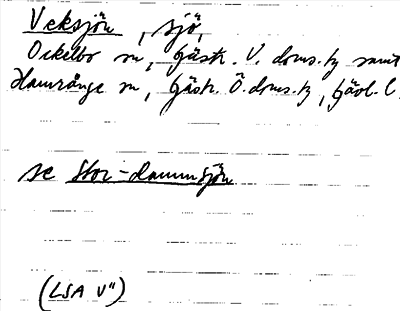 Veksjön, sjö,
Ockelbo sn, Gästr. V. doms.tg samt
Hamrånge sn, Gästr. Ö. doms.tg, Gävl. l.
se Stor-dammsjön
(LSA V")